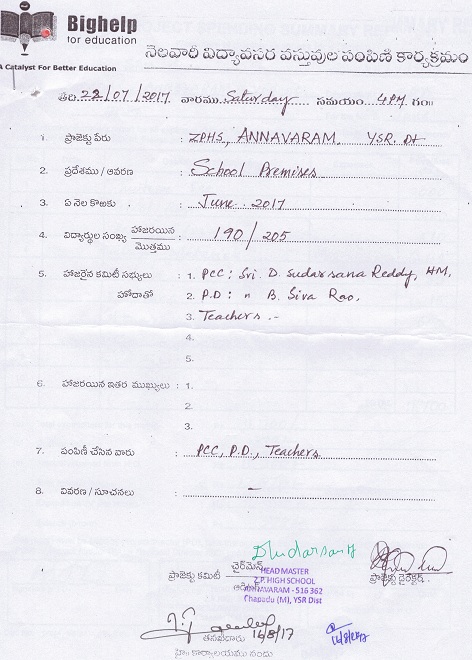 Bighelp
for education
A Catalyst For Better Education
నెలవారీ విద్యావసర వస్తువుల పంపిణి కార్యక్రమం
తేది 22/07/2017 వారము Saturday సమయం 4PM గం॥
1. ప్రాజెక్టు పేరు : ZPHS, ANNAVARAM, YSR. Dt
2. ప్రదేశము / ఆవరణ : School Premises
3. ఏ నెల కొఱకు : June 2017
4. విద్యార్థుల సంఖ్య హాజరయిన / మొత్తము : 190 / 205
5. హాజరైన కమిటీ సభ్యులు : 1. PCC: Sri. D. Sudarsana Reddy, HM,
హోదాతో 2. P.D : " B. Siva Rao,
3. Teachers .-
4.
5.
6. హాజరయిన ఇతర ముఖ్యులు : 1.
2.
3.
7. పంపిణీ చేసిన వారు : PCC, P.D., Teachers
8. వివరణ / సూచనలు : –
ప్రాజెక్టు కమిటీ చైర్‌మెన్ ప్రాజెక్టు డైరెక్టర్
HEAD MASTER
Z.P. HIGH SCHOOL
ANNAVARAM - 516 362
Chapadu (M), YSR Dist
16/8/17
తనిఖీదారు
హై॥ కార్యాలయము నందు